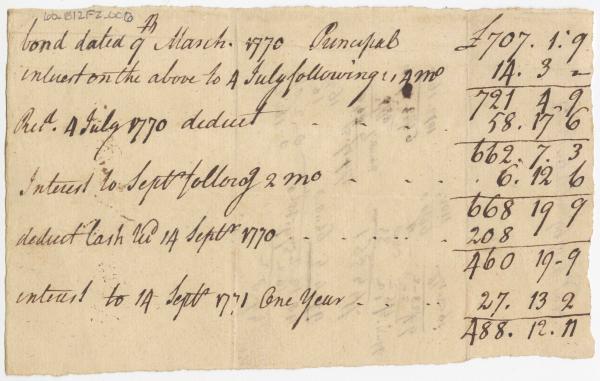 bond dated 9th March. 1770 Principal £707. 1. 9
interest on the above to 4 July following is 4 mo 14. 3 –
721 4 9
Recd. 4 July 1770 deduct 58. 17 6
662. 7. 3
Interest to Septr follow'g 2 mo - - - . 6. 12 6
668 19 9
deduct Cash Recd 14 Septr 1770 - - - - 208
460 19-9
interest to 14 Septr 1771 One Year - - - - 27. 13 2
488. 12. 11